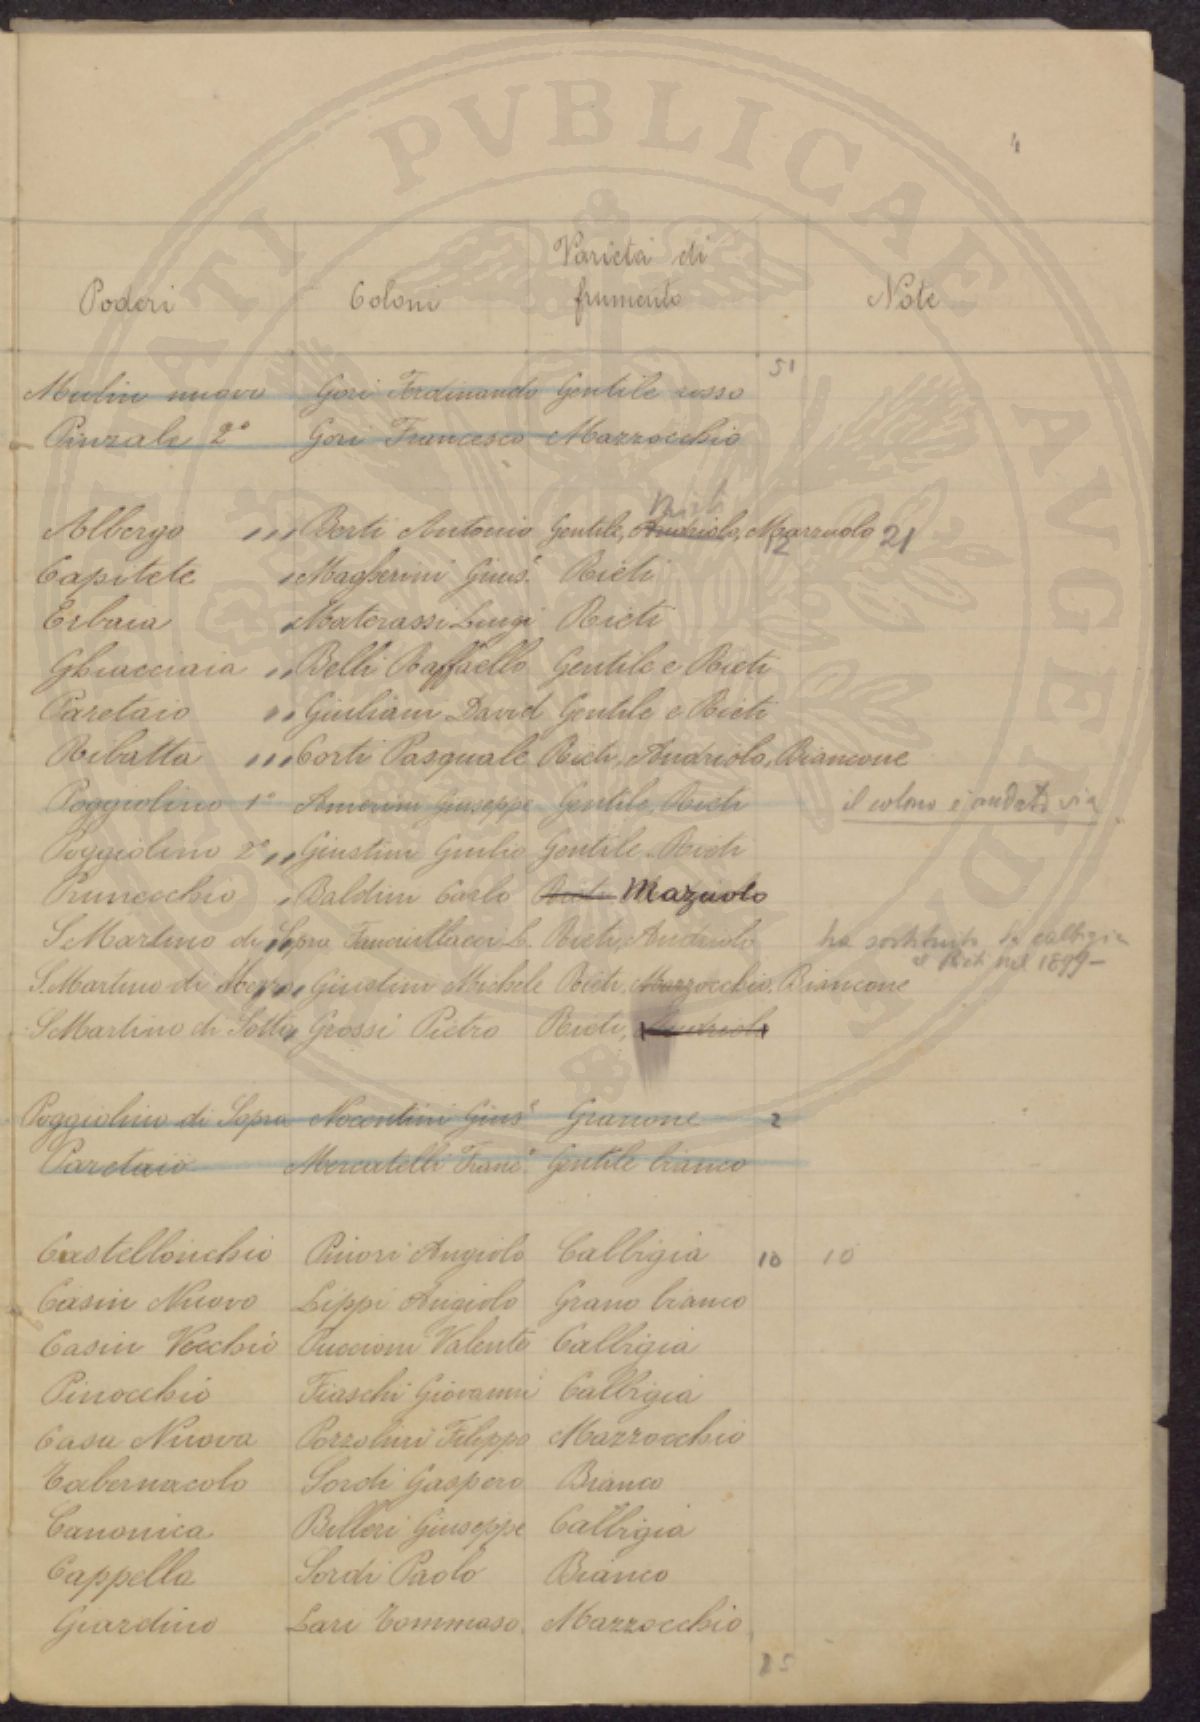 4
Poderi Coloni Varietà di frumento Note
51
Mulin nuovo Gori Ferdinando Gentile rosso
Pinzale 2° Gori Francesco Mazzocchio
Rieti
Albergo Berti Antonio Gentile, Andriolo, Mazzuolo 21
12
Capitete Magherini Gius.e Rieti
Erbaia Materassi Luigi Rieti
Ghiacciaia Belli Raffaello Gentile e Rieti
Paretaio Giuliani David Gentile e Rieti
Ribatta Corti Pasquale Rieti, Andriolo, Biancone
Poggiolino 1° Amerini Giuseppe Gentile, Rieti il colono è andato via
Poggiolino 2° Giustini Giulio Gentile, Rieti
Prunecchio Baldini Carlo Rieti Mazuolo
S. Martino di Sopra Fanciullacci L. Rieti, Andriolo ha sostituito la calbigia
al Rieti nel 1899 -
S. Martino di Mezzo Giustini Michele Rieti, Mazzocchio, Biancone
S. Martino di Sotto Grossi Pietro Rieti, Andriolo
Poggiolino di Sopra Nocentini Gius.e Granone 2
Paretaio Mercatelli Franc.o Gentile bianco
Castellonchio Piniori Angiolo Calbigia 10 10
Casin Nuovo Lippi Angiolo Grano bianco
Casin Vecchio Puccioni Valente Calbigia
Pinocchio Fiaschi Giovanni Calbigia
Casa Nuova Pozzolini Filippo Mazzocchio
Tabernacolo Sordi Gaspero Bianco
Canonica Billeri Giuseppe Calbigia
Cappella Sordi Paolo Bianco
Giardino Lari Tommaso Mazzocchio
25
PVBLICAE